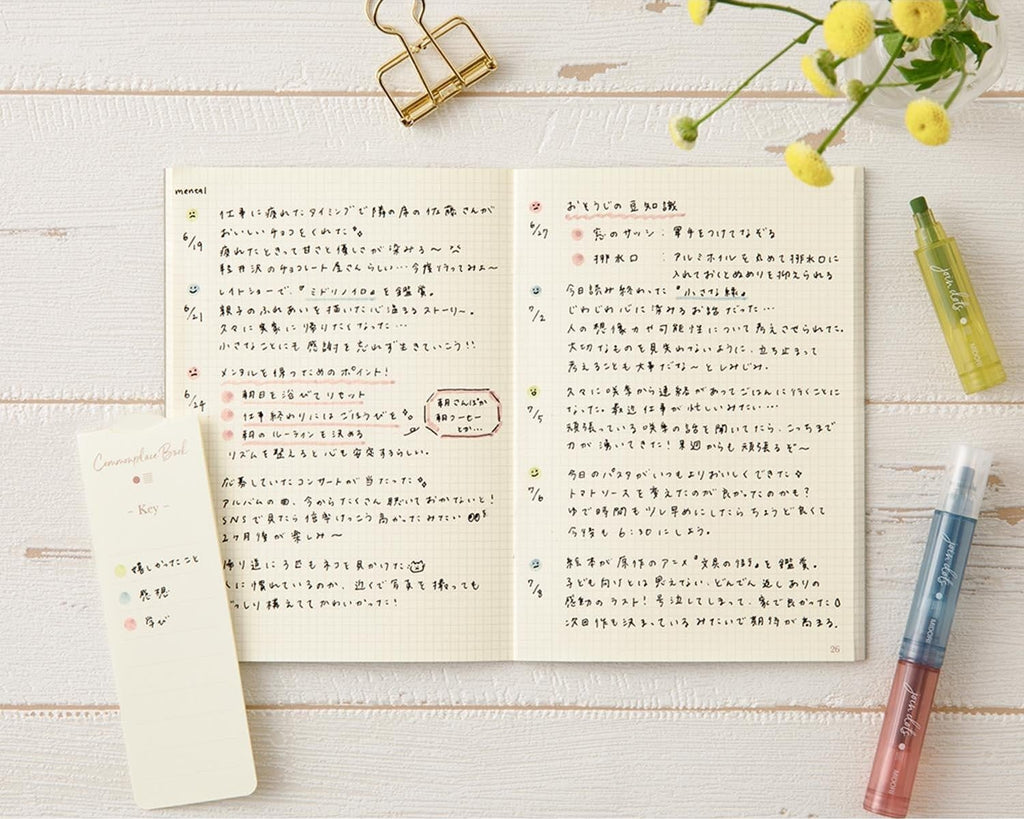 mental
6/19
仕事に疲れたタイミングで隣の席の佐藤さんが
おいしいチョコをくれた
疲れたときって甘さと優しさが染みる〜
軽井沢のチョコレート屋さんらしい…今度行ってみよ〜
6/21
レイトショーで、『ミドリノイロ』を鑑賞。
親子のふれあいを描いた心温まるストーリー。
久々に実家に帰りたくなった…
小さなことにも感謝を忘れず生きていこう!!
6/24
メンタルを保つためのポイント!
朝日を浴びてリセット
仕事終わりにはごほうびを
朝のルーティンを決める
朝さんぽか
朝コーヒー
とか…
リズムを整えると心も安定するらしい。
応募していたコンサートが当たった
アルバムの曲、今からたくさん聴いておかないと!
SNSで見たら倍率けっこう高かったみたい
2ヶ月後が楽しみ〜
帰り道に3匹もネコを見かけた
人に慣れているのか、近くで写真を撮っても
どっしり構えててかわいかった!
Commonplace Book
- Key -
嬉しかったこと
感想
学び
6/27
おそうじの豆知識
窓のサッシ:軍手をつけてなぞる
排水口:アルミホイルを丸めて排水口に
入れておくとぬめりを抑えられる
7/2
今日読み終わった『小さな緑』
じわじわ心に染みるお話だった…
人の想像力や可能性について考えさせられた。
大切なものを見失わないように、立ち止まって
考えることも大事だな〜としみじみ。
7/5
久々に咲季から連絡があってごはんに行くことに
なった。最近仕事が忙しいみたい…
頑張っている咲季の話を聞いてたら、こっちまで
力が湧いてきた!来週からも頑張るぞ〜
7/6
今日のパスタがいつもよりおいしくできた
トマトソースを変えたのが良かったのかも?
ゆで時間も少し早めにしたらちょうど良くて
今後も6:30にしよう。
7/8
絵本が原作のアニメ『文具の街』を鑑賞。
子ども向けとは思えない、どんでん返しありの
感動のラスト!号泣してしまって、家で良かった
次回作も決まっているみたいで期待が高まる。
26
join dots
MIDORI
join dots
MIDORI
join dots
MIDORI